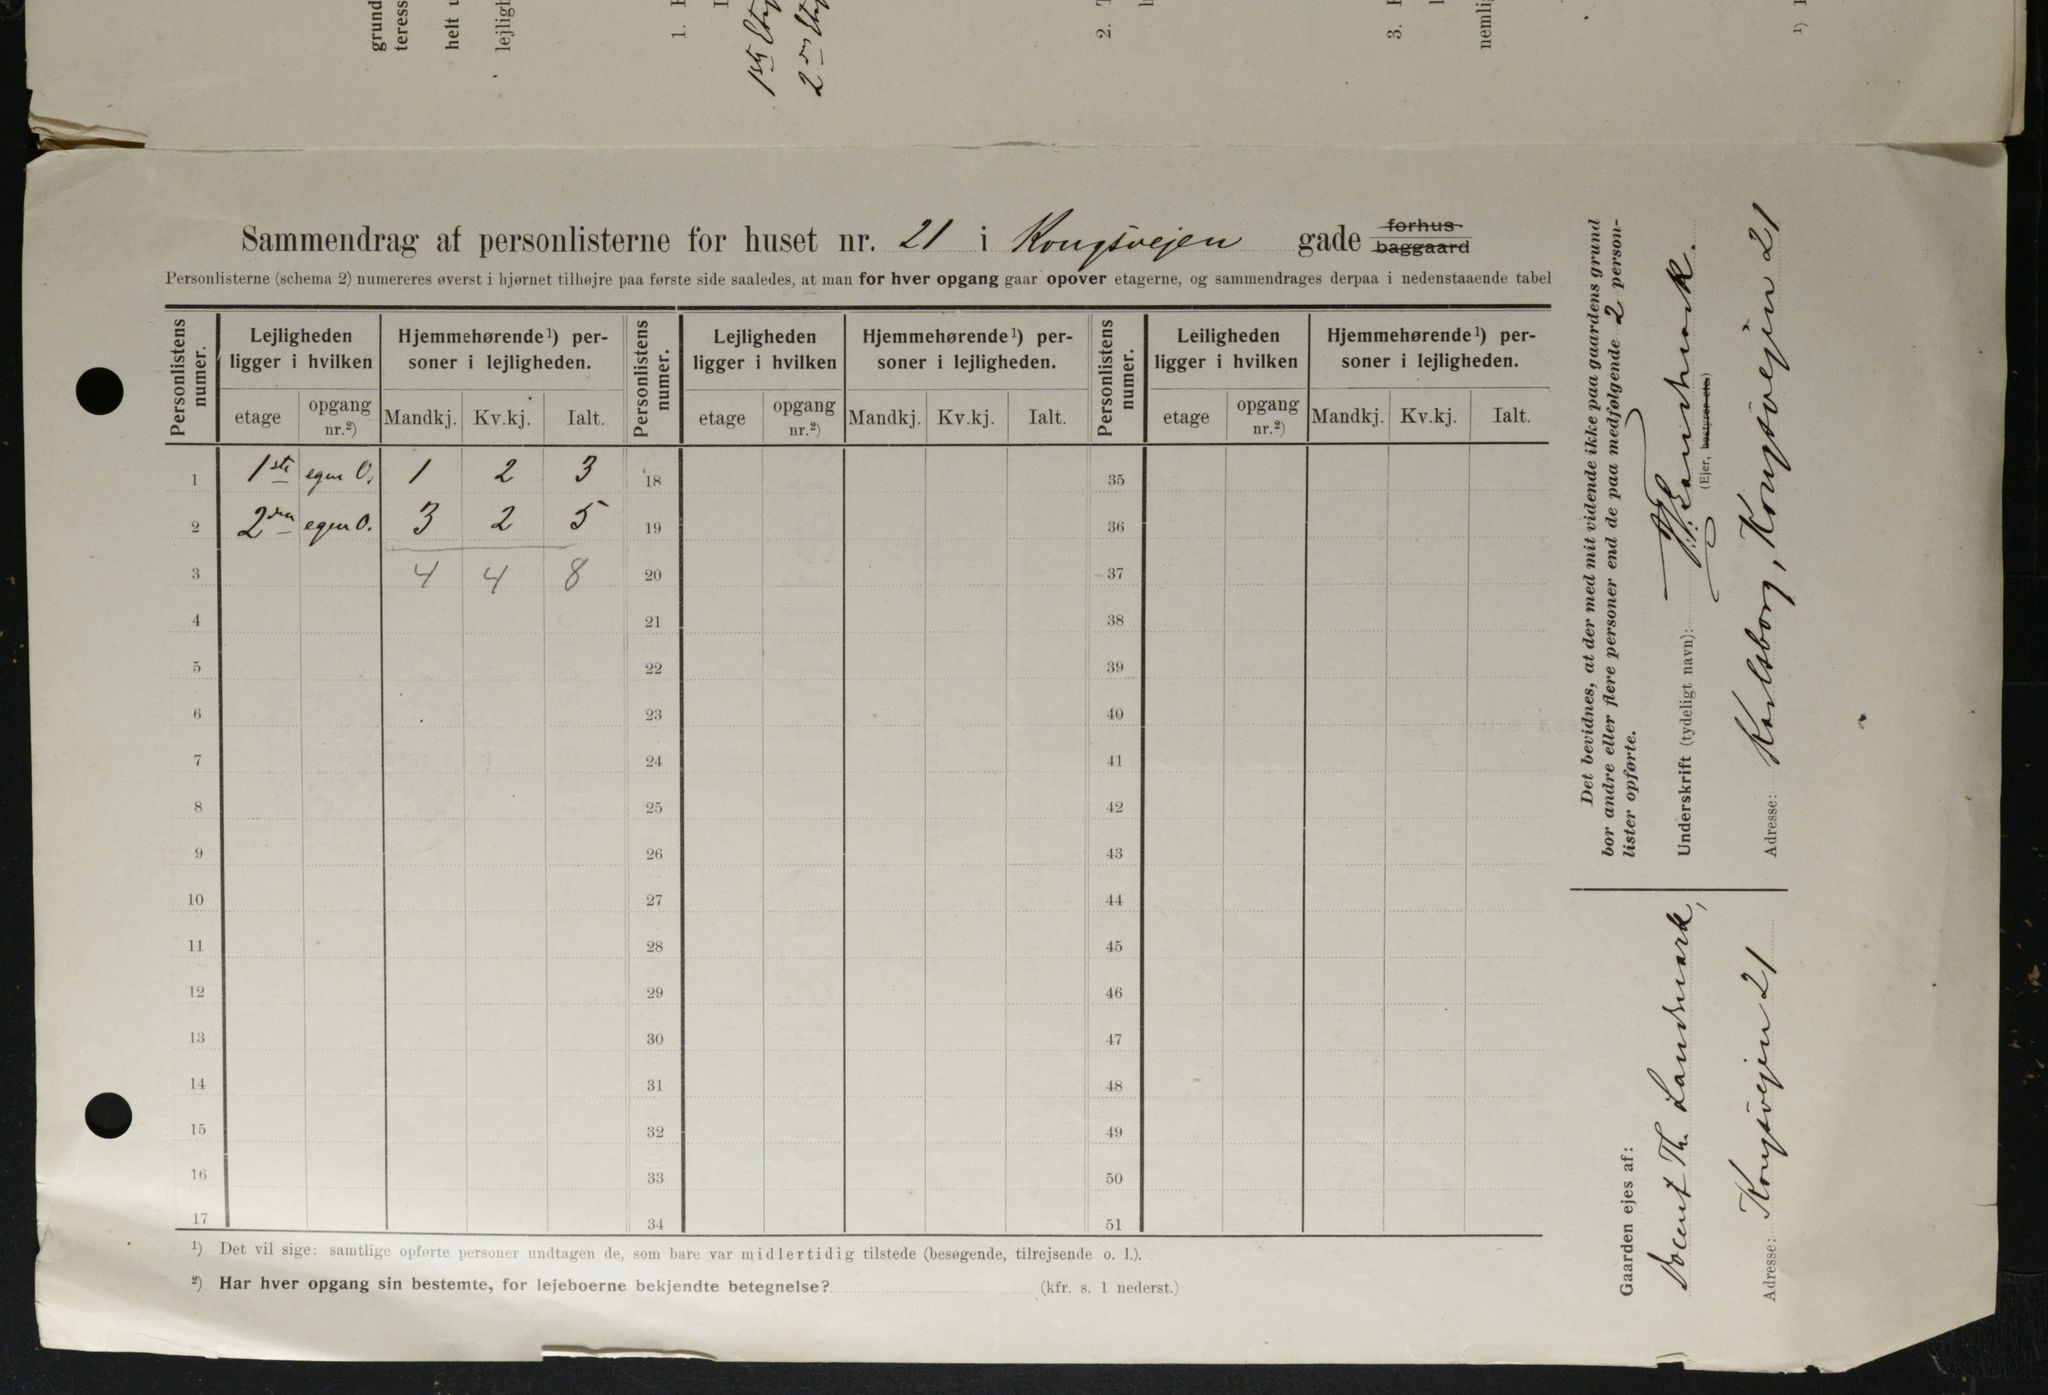 grund
teress
helt u
lejligh
1.
1ste Etag
2den Etag
2.
3.
nemlig
1)
Sammendrag af personlisterne for huset nr. 21 i Kongsvejen gade forhus baggaard
Personlisterne (schema 2) numereres øverst i hjørnet tilhøjre paa første side saaledes, at man for hver opgang gaar opover etagerne, og sammendrages derpaa i nedenstaaende tabel
Personlistens numer. Lejligheden ligger i hvilken Hjemmehørende ¹) personer i lejligheden. Personlistens numer. Lejligheden ligger i hvilken Hjemmehørende ¹) personer i lejligheden. Personlistens numer. Leiligheden ligger i hvilken Hjemmehørende ¹) personer i lejligheden.
etage opgang nr.²) Mandkj. Kv.kj. Ialt. etage opgang nr.²) Mandkj. Kv.kj. Ialt. etage opgang nr.²) Mandkj. Kv.kj. Ialt.
1 1ste egen O. 1 2 3 18 35
2 2den egen O. 3 2 5 19 36
3 4 4 8 20 37
4 21 38
5 22 39
6 23 40
7 24 41
8 25 42
9 26 43
10 27 44
11 28 45
12 29 46
13 30 47
14 31 48
15 32 49
16 33 50
17 34 51
¹) Det vil sige: samtlige opførte personer undtagen de, som bare var midlertidig tilstede (besøgende, tilrejsende o. l.).
²) Har hver opgang sin bestemte, for lejeboerne bekjendte betegnelse? (kfr. s. 1 nederst.)
Det bevidnes, at der med mit vidende ikke paa gaardens grund
bor andre eller flere personer end de paa medfølgende 2 person-
lister opførte.
Underskrift (tydeligt navn): Th. Landmark.
(Ejer, bestyrer etc.)
Adresse: Karlsborg, Kongsvejen 21
Gaarden ejes af:
Docent Th. Landmark,
Adresse: Kongsvejen 21